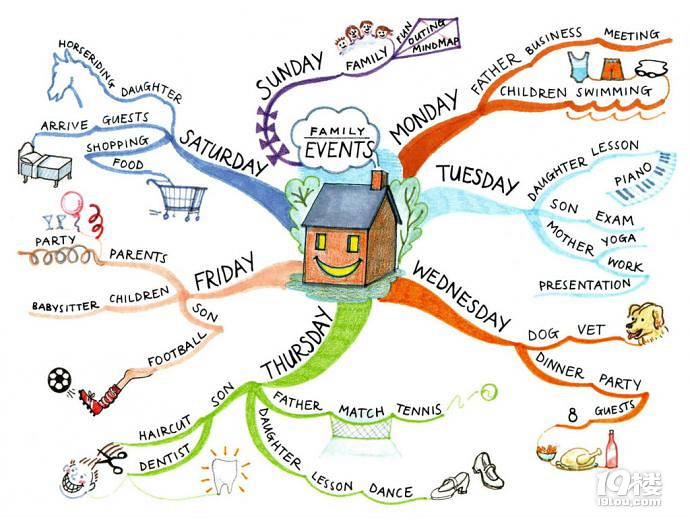 FAMILY
EVENTS
MONDAY
FATHER BUSINESS MEETING
CHILDREN SWIMMING
TUESDAY
DAUGHTER LESSON
PIANO
SON EXAM
MOTHER YOGA
WORK
PRESENTATION
WEDNESDAY
DOG VET
DINNER PARTY
8 GUESTS
THURSDAY
FATHER MATCH TENNIS
DAUGHTER LESSON DANCE
SON
HAIRCUT
DENTIST
FRIDAY
PARENTS
PARTY
CHILDREN
BABYSITTER
SON
FOOTBALL
SATURDAY
DAUGHTER
HORSERIDING
GUESTS
ARRIVE
SHOPPING
FOOD
SUNDAY
FAMILY
FUN
OUTING
MINDMAP
19楼
19lou.com